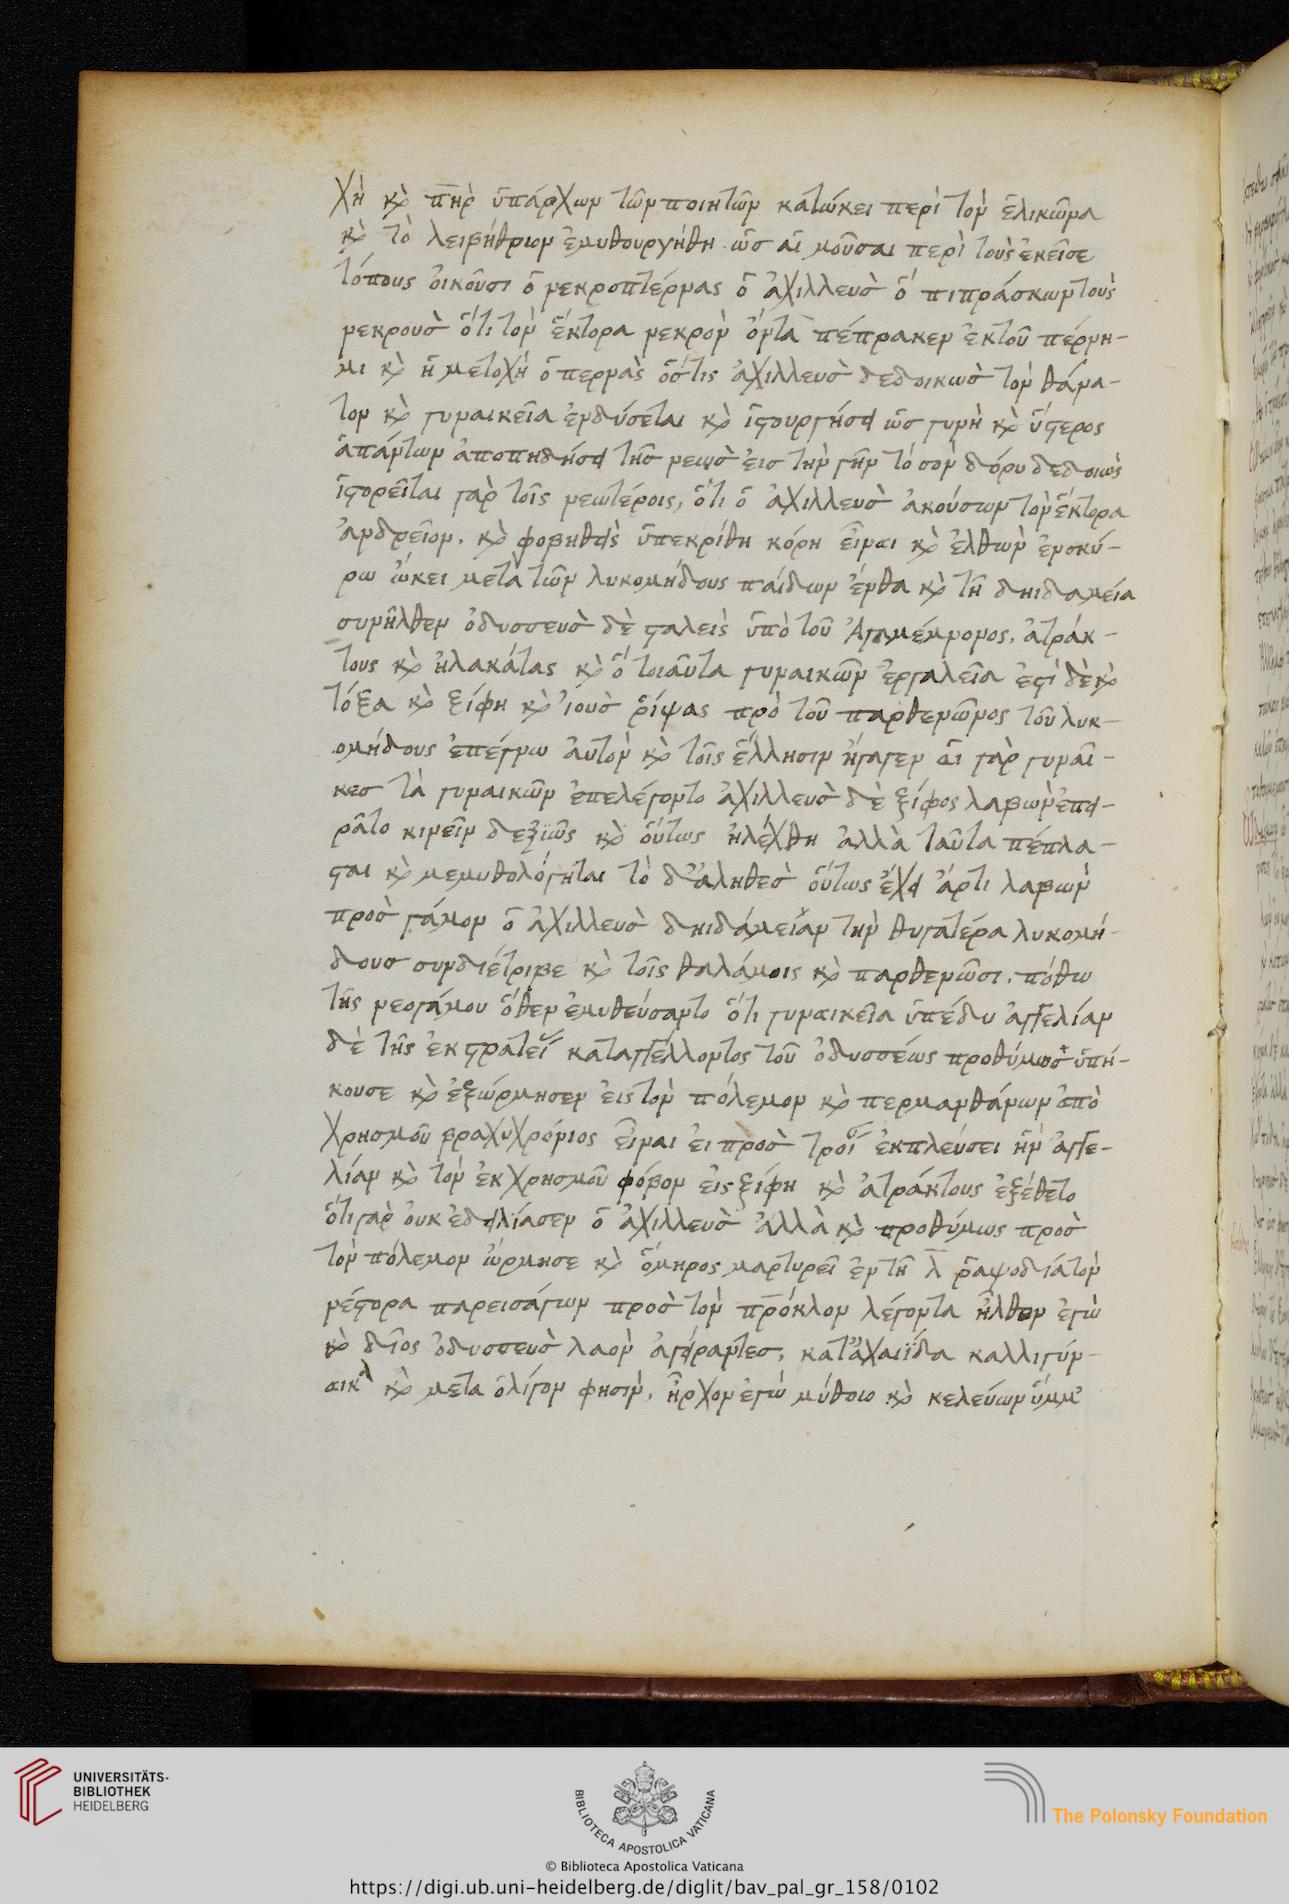 χὴ κὶ πὴρ ὑπάρχων τῶν ποιητῶν κατώκει περὶ τὸν ἑλικῶνα
κὶ τὸ λειβήθριον ἐμυθουργήθη ὡσ αἱ μοῦσαι περὶ τοὺς ἐκεῖσε
τόπους οἰκοῦσι ὁ νεκροπέρνας ὁ ἀχιλλευσ ὁ πιπράσκων τοὺς
νεκρουσ ὅτι τὸν ἕκτορα νεκρὸν ὄντα πέπρακεν ἐκ τοῦ πέρνη-
μι κὶ ἡ μετοχὴ ὁ περνὰς ὅστις ἀχιλλευσ δεδοικωσ τὸν θάνα-
τον κὶ γυναικεῖα ἐνδύσεται κὶ ἱστουργήσει ὡσ γυνὴ κὶ ὕστερος
ἁπάντων ἀποπηδήσει τῆσ νεωσ εἰσ τὴν γῆν τὸ σὸν δόρυ δεδοιὼς
ἱστορεῖται γὰρ τοῖς νεωτέροις, ὅτι ὁ ἀχιλλευσ ἀκούσων τὸν ἕκτορα
ἀνδρεῖον. κὶ φοβηθεὶς ὑπεκρίθη κόρη εἶναι κὶ ἐλθὼν ἐν σκύ-
ρω ὤκει μετὰ τῶν λυκομήδους παίδων ἔνθα κὶ τῆ δηιδαμεία
συνῆλθεν ὀδυσσευσ δὲ σταλεὶς ὑπὸ τοῦ Ἀγαμέμνονος. ἀτράκ-
τους κὶ ἠλακάτας κὶ ὅ τοιαῦτα γυναικῶν ἐργαλεῖα ἐστὶ δὲ κὶ
τόξα κὶ ξίφη κὶ ἰουσ ῥίψας πρὸ τοῦ παρθενῶνος τοῦ λυκ-
ομήδους ἐπέγνω αὐτὸν κὶ τοῖς ἕλλησιν ἤγαγεν αἱ γὰρ γυναῖ-
κεσ τὰ γυναικῶν ἐπελέγοντο ἀχιλλευσ δὲ ξίφος λαβὼν ἐπει-
ρᾶτο κινεῖν δεξϊῶς κὶ οὕτως ἠλέχθη ἀλλὰ ταῦτα πέπλα-
σται κὶ μεμυθολόγηται τὸ δ' ἀληθεσ οὕτως ἔχει ἄρτι λαβὼν
προσ γάμον ὁ ἀχιλλευσ δηιδάμειαν τὴν θυγατέρα λυκομή-
δουσ συνδιέτριβε κὶ τοῖς θαλάμοις κὶ παρθενῶσι. πόθω
τῆς νεογάμου ὅθεν ἐμυθεύσαντο ὅτι γυναικεῖα ὑπέδυ ἀγγελίαν
δὲ τῆς ἐκστρατεί καταγγέλλοντος τοῦ ὀδυσσέως προθύμωσ ὑπή-
κουσε κὶ ἐξώρμησεν εἰς τὸν πόλεμον κὶ περμανθάνων ἀπὸ
χρησμοῦ βραχυχρόνιος εἶναι εἰ προσ τροί ἐκπλεύσει ἣν ἀγγε-
λίαν κὶ τὸν ἐκ χρησμοῦ φόβον εἰς ξίφη κὶ ἀτράκτους ἐξέθετο
ὅτι γὰρ οὐκ ἐδειλίασεν ὁ ἀχιλλευσ ἀλλὰ κὶ προθύμως προσ
τὸν πόλεμον ὥρμησε κὶ ὅμηρος μαρτυρεῖ ἐν τῆ λ ῥαψοδία τὸν
νέστορα παρεισάγων προσ τὸν πρόκλον λέγοντα ἦλθον ἐγὼ
κὶ δῖος ὀδυσσευσ λαὸν ἀγείραντεσ, κατ' ἀχαιΐδα καλλιγύν-
αικα κὶ μετα ὀλίγον φησιν. ἦρχον ἐγὼ μύθοιο κὶ κελεύων ὕμμ'
UNIVERSITÄTS-
BIBLIOTHEK
HEIDELBERG
BIBLIOTECA APOSTOLICA VATICANA
The Polonsky Foundation
© Biblioteca Apostolica Vaticana
https://digi.ub.uni-heidelberg.de/diglit/bav_pal_gr_158/0102